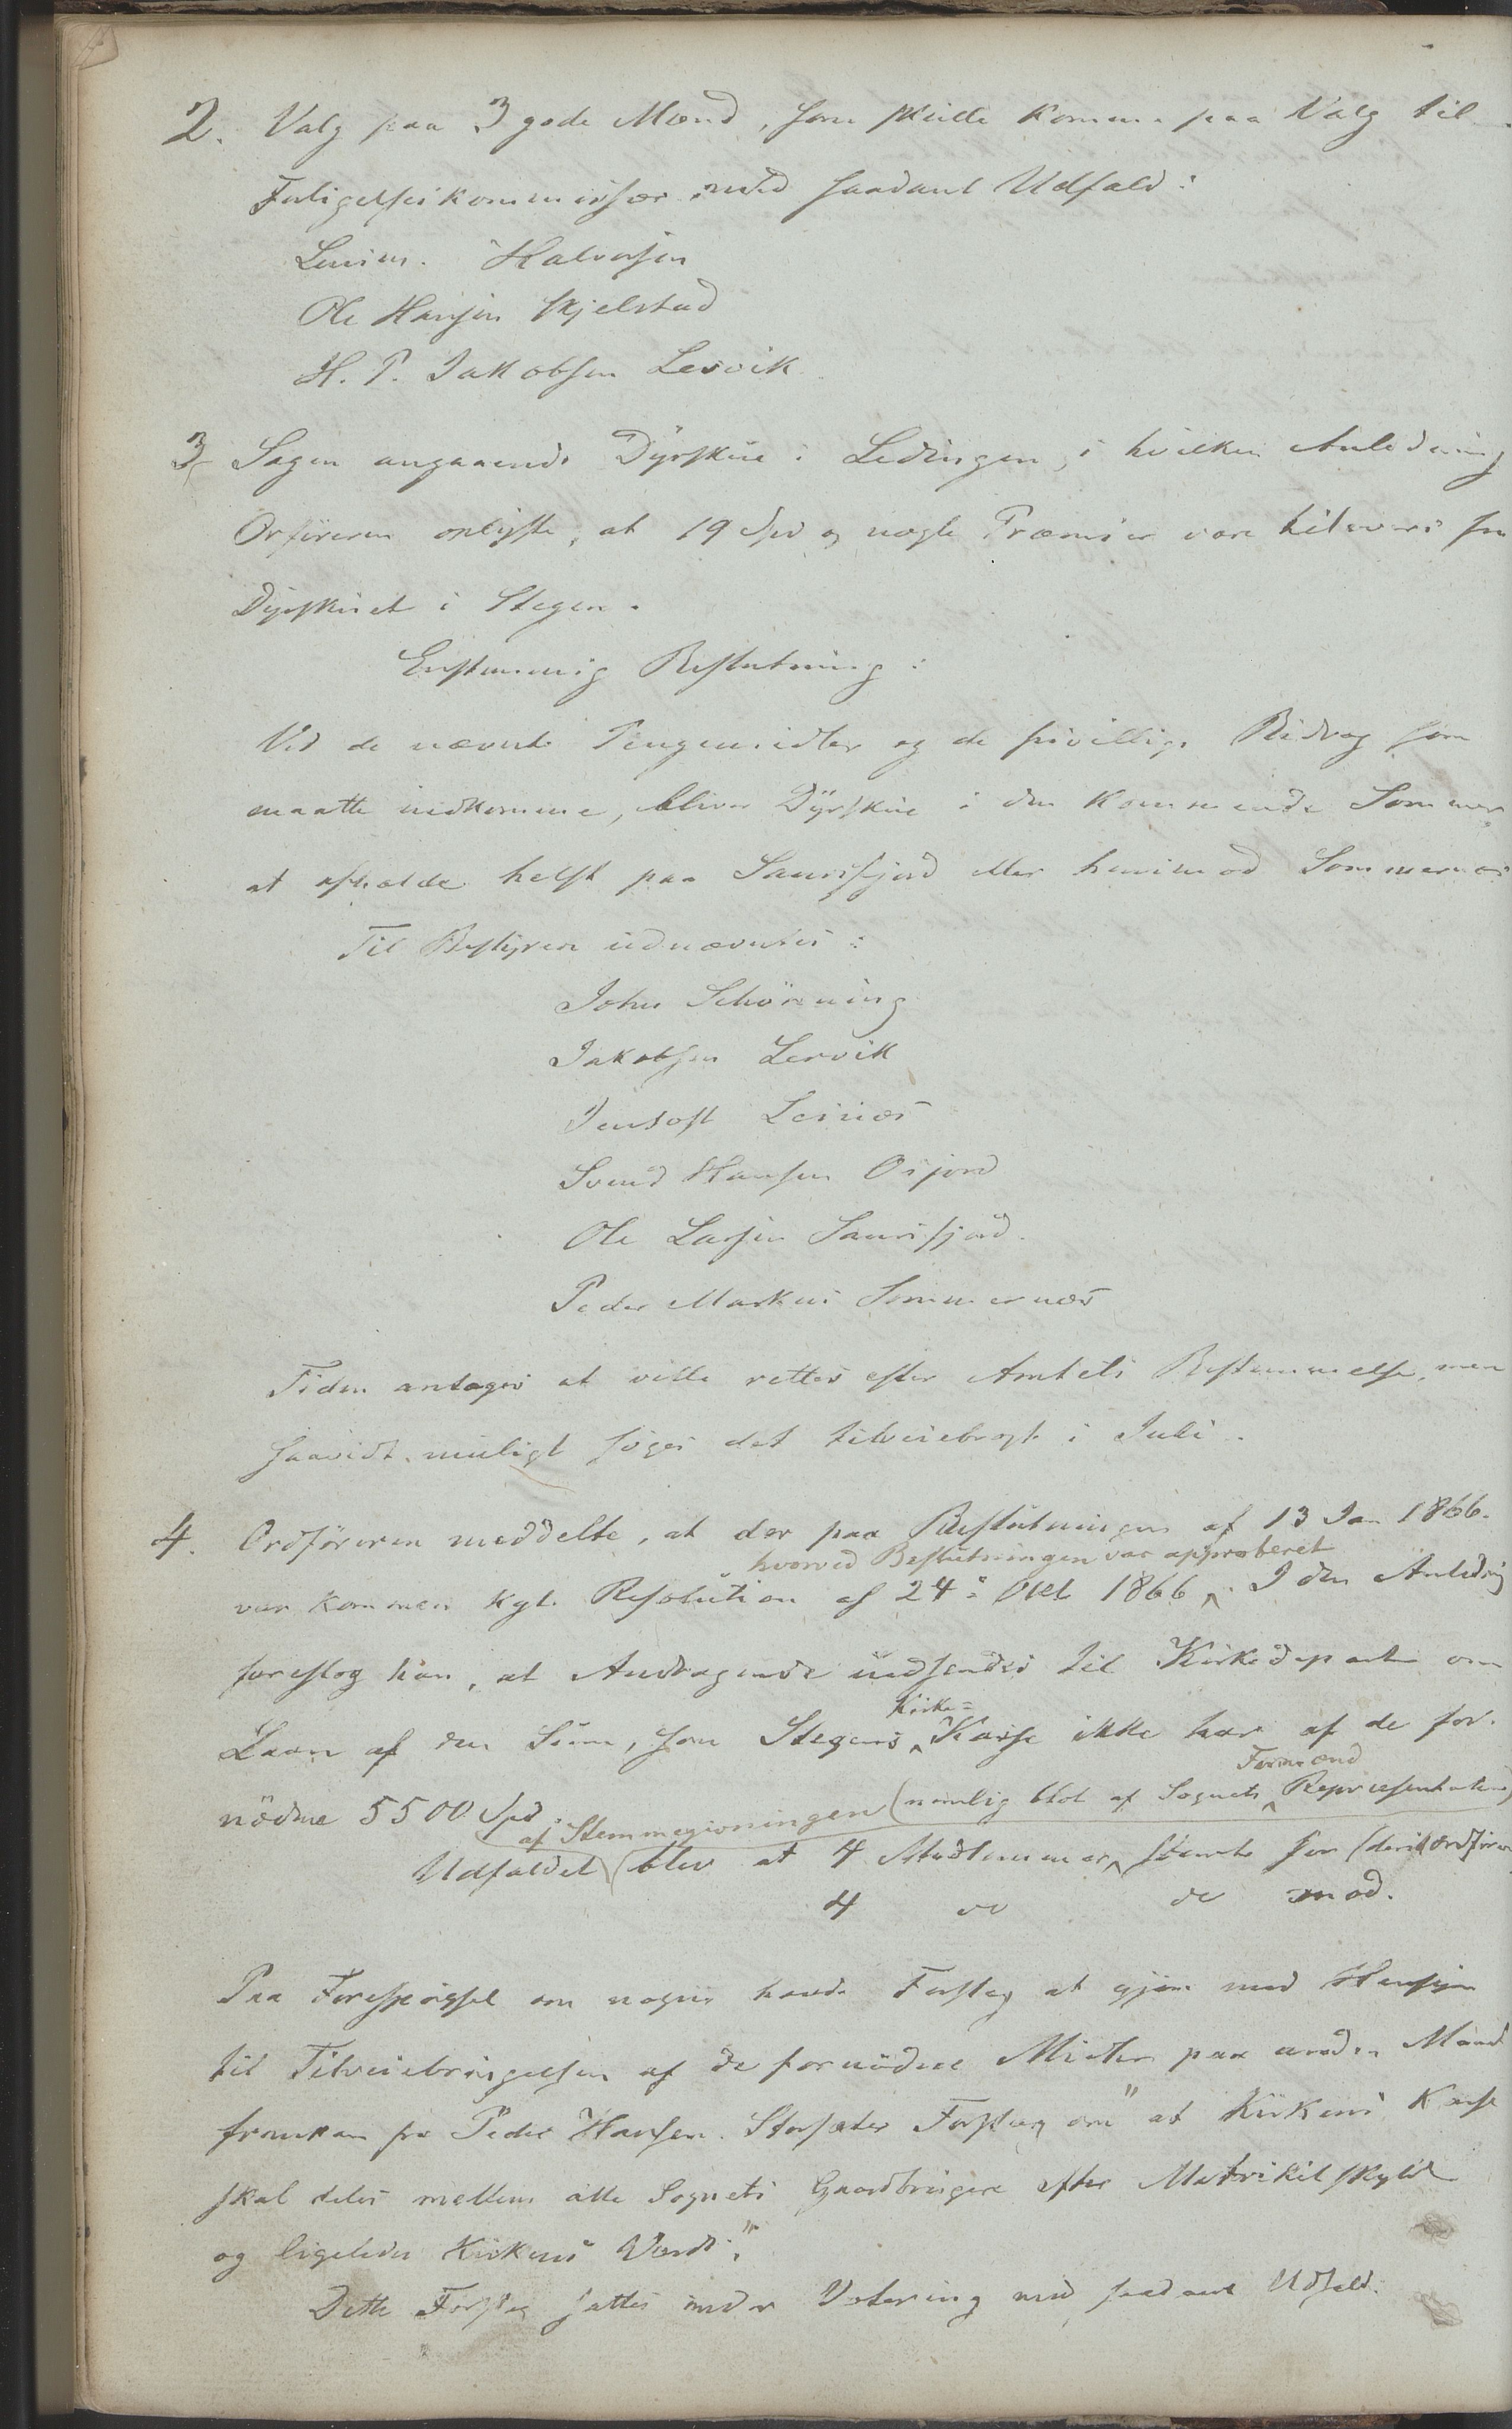 2. Valg paa 3 gode Mænd, som skulde komme paa Valg til
Forligelseskommissær med saadant Udfald:
Halvorsen
Ole Hansen Skjelstad
H. P. Jakobsen Lervik
3 Sagen angaaende Dyrskue i Ledingen, i hvilken Anledning
Orføreren oplyste, at 19 Spd og nogle Præmier vare tilovers fra
Dyrskuet i Stegen.
Enstemmig Beslutning:
Ved de nævnte Pengemidler og de frivillige Bidrag som
maatte indkomme, bliver Dyrskue i den kommende Sommer
at afholde helst paa Saursfjord eller henimod Sommernæs
Til Bestyrere udnævntes:
John Schönning
Jakobsen Lervik
Jentoft Leinæs
Svend Hansen Osjord
Ole Larsen Saursfjord.
Peder Markus Sommernæs
Tiden antages at ville rettes efter Amtets Bestemmelse, men
saavidt muligt søges det tilveiebragt i Juli.
4. Ordføreren meddelte, at der paa Beslutningen af 13 Jan 1866.
hvorved Beslutningen var approberet
var kommen kgl. Resolution af 24de Okt 1866. I den Anledning
foreslog han, at Andragende indsendes til Kirkedepart. om
Kirke=
Laan af den Sum, som Stegens Kasse ikke har af de for-
Formænd
nødne 5500 Spd.
af Stemmegivningen (nemlig blot af Sognets Repræsentanter)
Udfaldet blev at 4 Medlemmer stemte for (deri Ordføreren
4 do do mod.
Paa Forespørgsel om nogen havde Forslag at gjøre med Hensyn
til Tilveiebringelsen af de fornødne Midler paa anden Maade
fremkom fra Peder Hansen Storsæter Forslag om "at Kirkens Kasse
skal deles mellem alle Sognets Gaardbrugere efter Matrikelskyld
og ligeledes Kirkens Værdi."
Dette Forslag sattes under Votering med saadant Udfald: